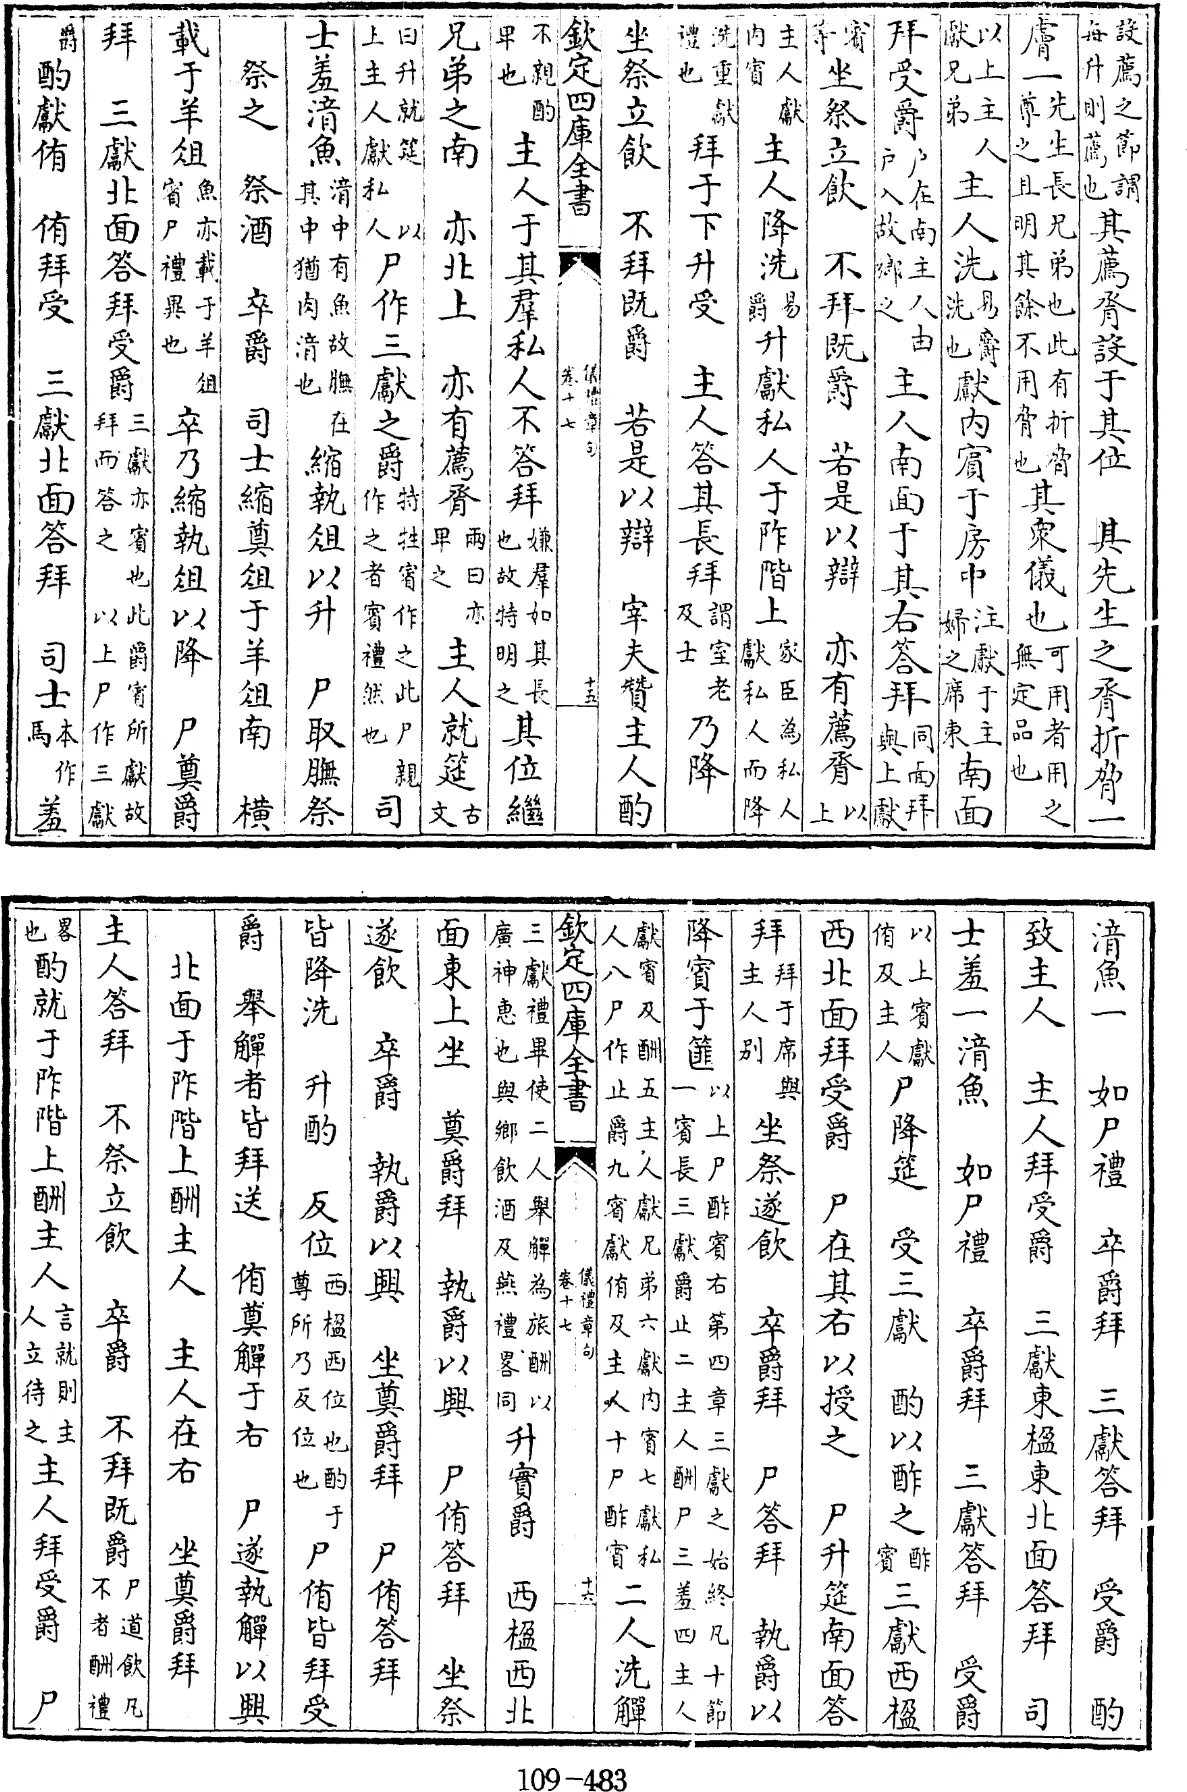 設薦之節謂每升則薦也其薦脀設于其位　其先生之脀折脅一
膚一先生長兄弟也此有折脅尊之且明其餘不用脅也其衆儀也可用者用之無定品也
以上主人獻兄弟主人洗易爵洗也獻内賓于房中注獻于主婦之席東南面
拜受爵戶在南主人由戶入故鄉之主人南面于其右答拜同面拜與上獻
賓等坐祭立飲　不拜既爵　若是以辯　亦有薦脀以上
主人獻内賓主人降洗易爵升獻私人于阼階上家臣為私人獻私人而降
洗重獻禮也拜于下升受　主人答其長拜謂室老及士乃降
坐祭立飲　不拜既爵　若是以辯　宰夫贊主人酌
欽定四庫全書　儀禮章句卷十七　十五
不親酌卑也主人于其羣私人不答拜嫌羣如其長也故特明之其位繼
兄弟之南　亦北上　亦有薦脀兩曰亦卑之主人就筵古文
曰升就筵以上主人獻私人尸作三獻之爵特牲賓作之此尸親作之者賓禮然也司
士羞湆魚湆中有魚故膴在其中猶肉湆也縮執俎以升　尸取膴祭
祭之　祭酒　卒爵　司士縮奠俎于羊俎南　橫
載于羊俎魚亦載于羊俎賓尸禮異也卒乃縮執俎以降　尸奠爵
拜　三獻北面答拜受爵三獻亦賓也此爵賓所獻故拜而答之以上尸作三獻
爵酌獻侑　侑拜受　三獻北面答拜　司士本作馬羞
湆魚一　如尸禮　卒爵拜　三獻答拜　受爵　酌
致主人　主人拜受爵　三獻東楹東北面答拜　司
士羞一湆魚　如尸禮　卒爵拜　三獻答拜　受爵
以上賓獻侑及主人尸降筵　受三獻　酌以酢之酢賓三獻西楹
西北面拜受爵　尸在其右以授之　尸升筵南面答
拜拜于席與主人別坐祭遂飲　卒爵拜　尸答拜　執爵以
降實于篚以上尸酢賓右第四章三獻之始終凡十節一賓長三獻爵止二主人酬尸三羞四主人
獻賓及酬五主人獻兄弟六獻内賓七獻私人八尸作止爵九賓獻侑及主人十尸酢賓二人洗觶
欽定四庫全書　儀禮章句卷十七　十六
三獻禮畢使二人舉觶為旅酬以廣神惠也與鄉飲酒及燕禮畧同升實爵　西楹西北
面東上坐　奠爵拜　執爵以興　尸侑答拜　坐祭
遂飲　卒爵　執爵以興　坐奠爵拜　尸侑答拜
皆降洗　升酌　反位西楹西位也酌于尊所乃反位也尸侑皆拜受
爵　舉觶者皆拜送　侑奠觶于右　尸遂執觶以興
北面于阼階上酬主人　主人在右　坐奠爵拜
主人答拜　不祭立飲　卒爵　不拜既爵尸道飲凡不者酬禮
畧也酌就于阼階上酬主人言就則主人立待之主人拜受爵　尸
109-483